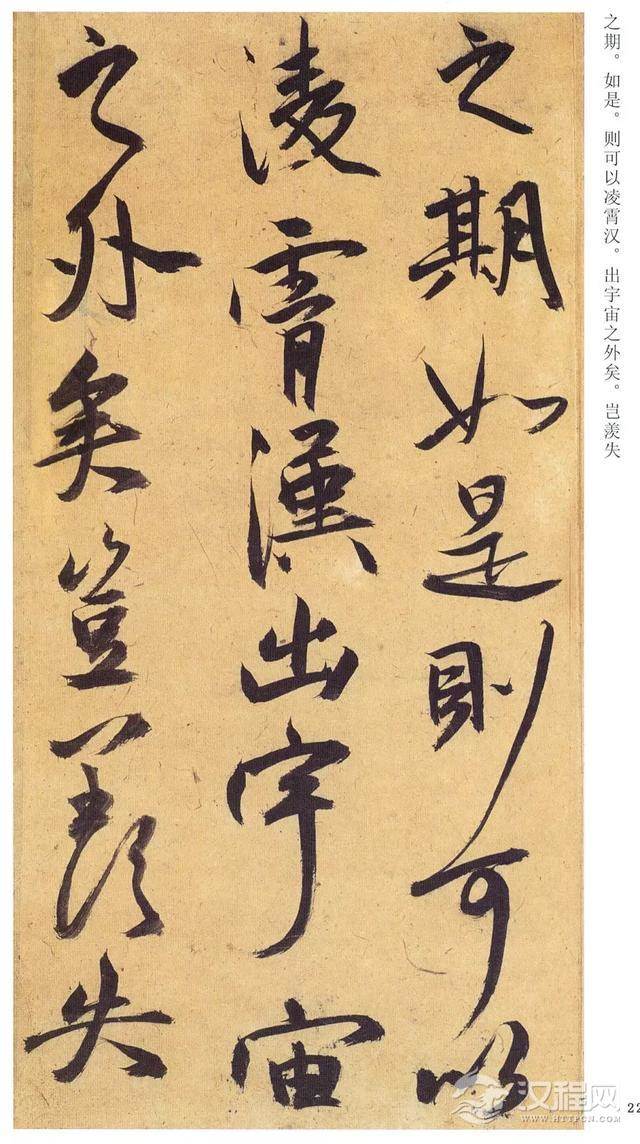 之期。如是。则可以凌霄汉。出宇宙之外矣。岂羡失
之期如是則可以
凌霄漢出宇宙
之外矣豈羡失
22
汉程网
WWW.HTTPCN.COM